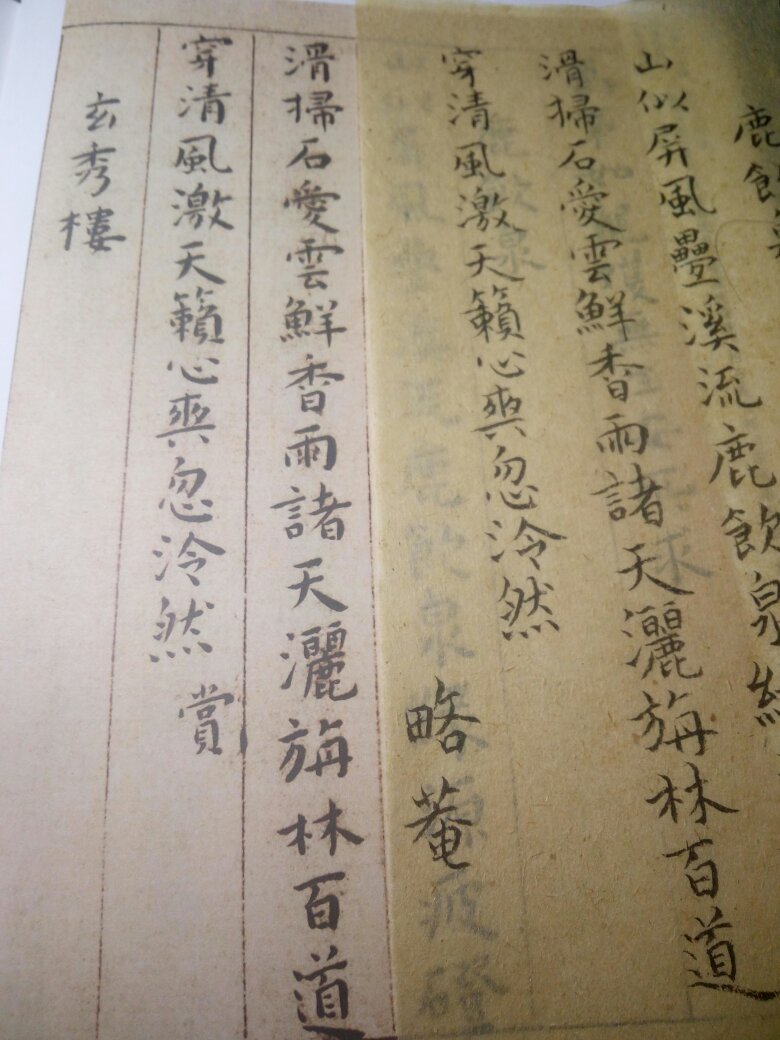 鹿飲泉
山似屏風疊溪流鹿飲泉
滑掃石愛雲鮮香雨諸天灑旃林百道
穿清風激天籟心爽忽泠然
略菴
滑掃石愛雲鮮香雨諸天灑旃林百道
穿清風激天籟心爽忽泠然
賞
玄秀樓